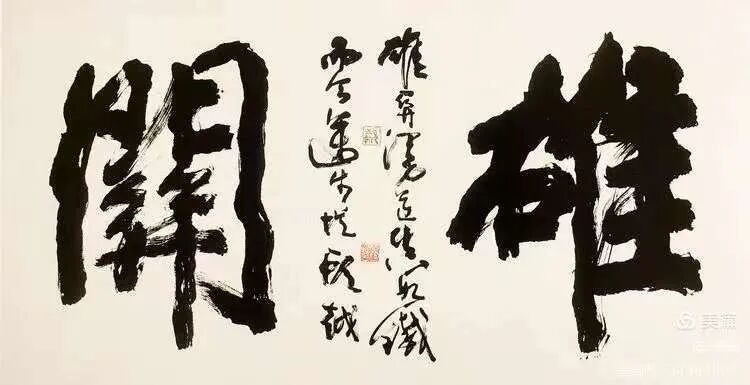 雄
雄關漫道真如鐵
而今邁步從頭越
關
美篇